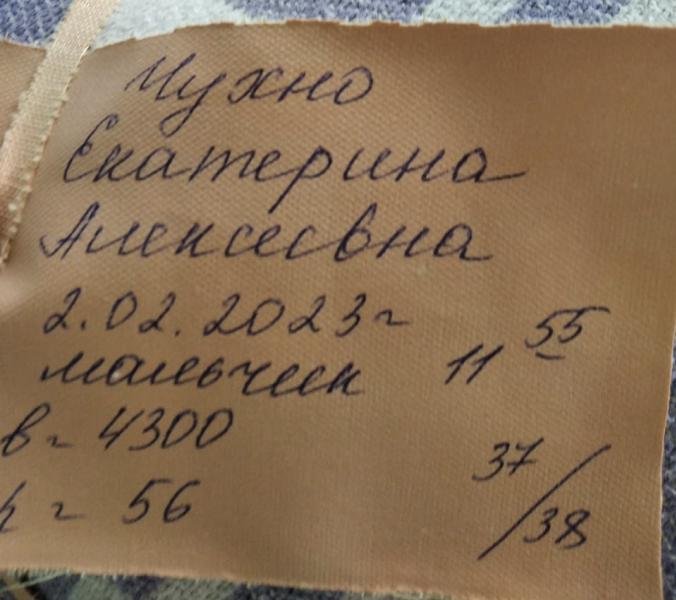 Чухно
Екатерина
Алексеевна
2.02.2023г
мальчик 11 55
в = 4300
р = 56 37/38